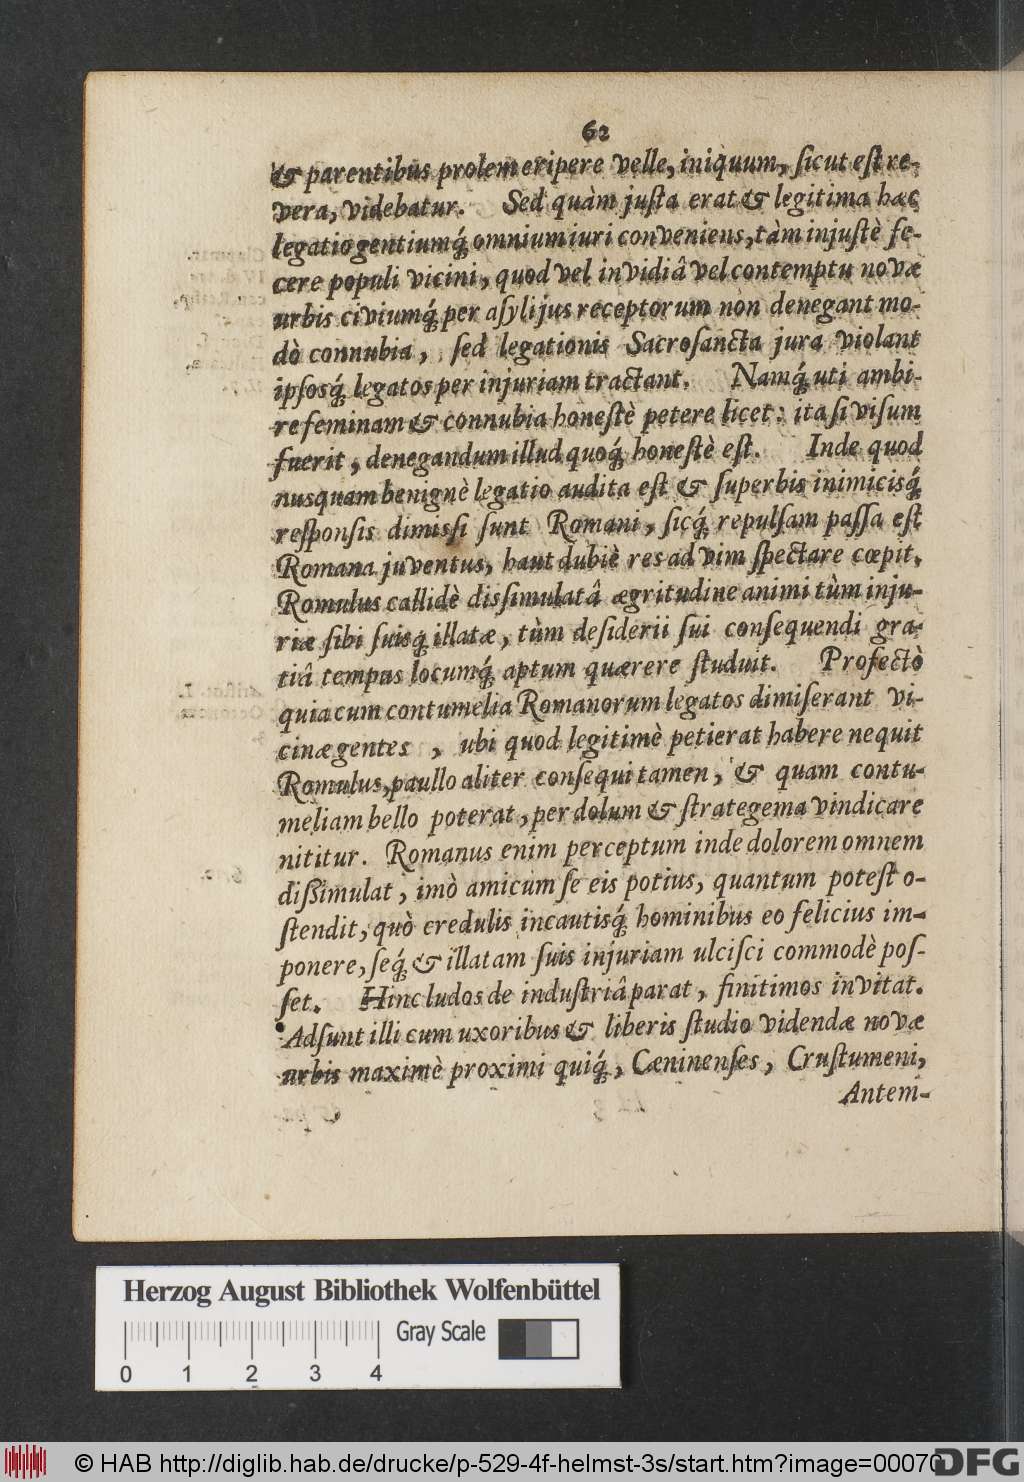 62
& parentibus prolem eripere velle, iniquum, ſicut eſt re-
vera, videbatur. Sed quàm juſta erat & legitima hæc
legatio gentiumq́; omnium iuri conveniens, tàm injuſtè fe-
cere populi vicini, quod vel invidiâ vel contemptu novæ
urbis civiumq́; per aſyli jus receptorum non denegant mo-
dò connubia, ſed legationis Sacroſancta jura violant
ipſosq́; legatos per injuriam tractant. Namq́; uti ambi-
re feminam & connubia honeſtè petere licet: ita ſi viſum
fuerit, denegandum illud quoq́; honeſtè eſt. Inde quod
nusquam benignè legatio audita eſt & ſuperbis inimicisq́;
reſponſis dimisſi ſunt Romani, ſicq́; repulſam paſſa eſt
Romana juventus, haut dubiè res ad vim ſpectare cœpit.
Romulus callidè disſimulatâ ægritudine animi tùm inju-
riæ ſibi ſuisq́; illatæ, tùm deſiderii ſui conſequendi gra-
tiâ tempus locumq́; aptum quærere ſtuduit. Profectò
quia cum contumelia Romanorum legatos dimiſerant vi-
cinæ gentes, ubi quod legitimè petierat habere nequit
Romulus, paullo aliter conſequi tamen, & quam contu-
meliam bello poterat, per dolum & ſtrategema vindicare
nititur. Romanus enim perceptum inde dolorem omnem
dißimulat, imò amicum ſe eis potius, quantum poteſt o-
ſtendit, quò credulis incautisq́; hominibus eo felicius im-
ponere, ſeq́; & illatam ſuis injuriam ulciſci commodè poſ-
ſet. Hinc ludos de induſtriâ parat, finitimos invitat.
Adſunt illi cum uxoribus & liberis ſtudio videndæ novæ
urbis maximè proximi quiq́;, Cæninenſes, Cruſtumeni,
Antem-
Herzog August Bibliothek Wolfenbüttel
Gray Scale
0 1 2 3 4
© HAB http://diglib.hab.de/drucke/p-529-4f-helmst-3s/start.htm?image=00070
DFG